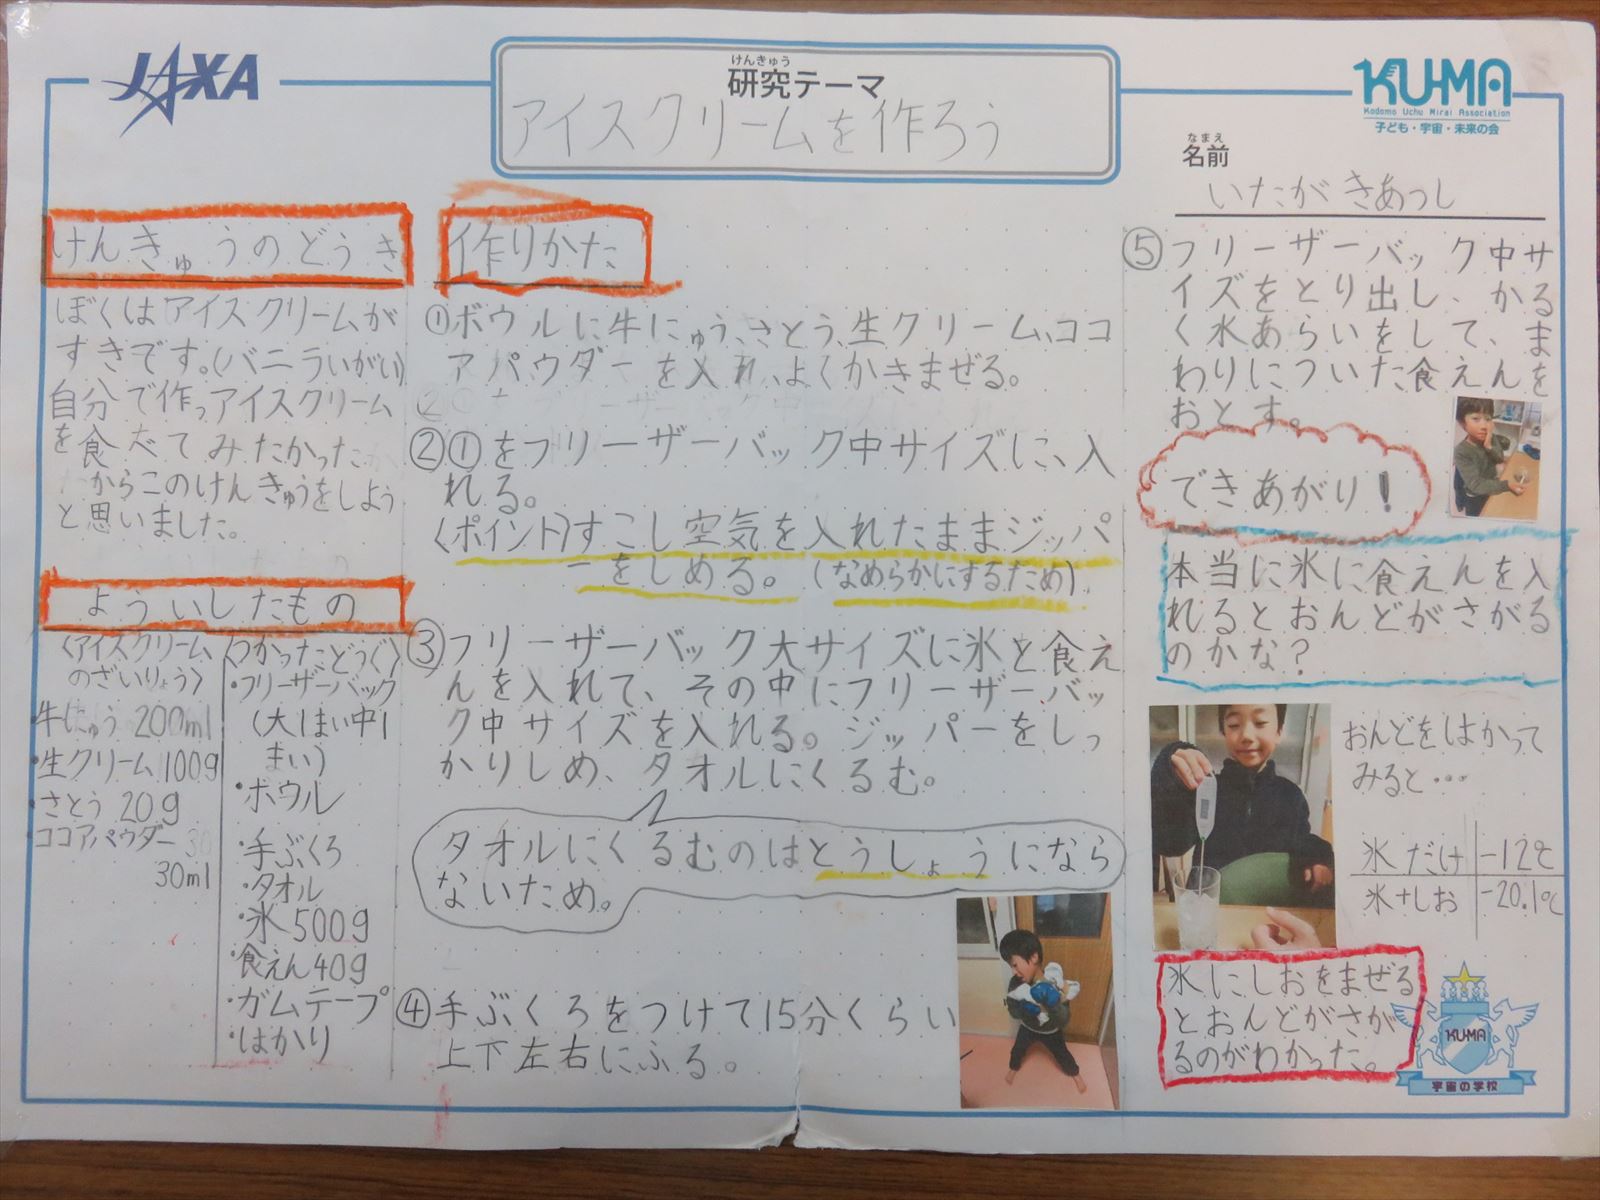 JAXA
けんきゅう
研究テーマ
アイスクリームを作ろう
KU-MA
Kodomo Uchu Mirai Association
子ども・宇宙・未来の会
なまえ
名前
いたがきあつし
けんきゅうのどうき
ぼくはアイスクリームが
すきです。(バニラいがい)
自分で作っアイスクリーム
を食べてみたかった
からこのけんきゅうをしよう
と思いました。
よういしたもの
〈アイスクリーム
のざいりょう〉
牛にゅう 200ml
・生クリーム 100g
・さとう 20g
ココアパウダー
30ml
〈つかったどうぐ〉
・フリーザーバック
(大1まい中1
まい)
・ボウル
・手ぶくろ
・タオル
・氷 500g
・食えん40g
・ガムテープ
・はかり
作りかた
①ボウルに牛にゅう、さとう、生クリーム、ココ
アパウダーを入れ、よくかきまぜる。
②①をフリーザーバック中サイズに、入
れる。
〈ポイント〉すこし空気を入れたままジッパ
ーをしめる。(なめらかにするため)
③フリーザーバック大サイズに氷と食え
んを入れて、その中にフリーザーバッ
ク中サイズを入れる。ジッパーをしっ
かりしめ、タオルにくるむ。
タオルにくるむのはとうしょうになら
ないため。
④手ぶくろをつけて15分くらい
上下左右にふる。
⑤フリーザーバック中サ
イズをとり出し、かる
く水あらいをして、ま
わりについた食えんを
おとす。
できあがり!
本当に氷に食えんを入
れるとおんどがさがる
のかな?
おんどをはかって
みると…
氷だけ -12℃
氷+しお -20.1℃
氷にしおをまぜる
とおんどがさが
るのがわかった。
KU-MA
宇宙の学校